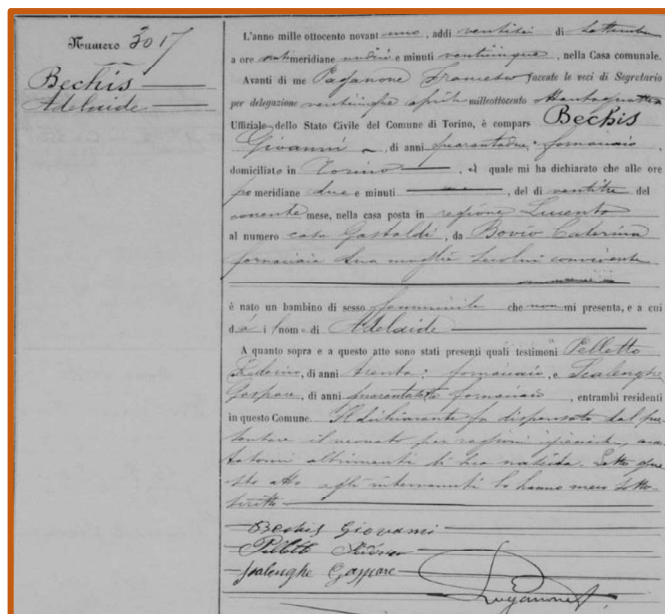 Numero 3017
Bechis
Adelaide
L'anno mille ottocento novantuno, addì ventisei di Settembre
a ore antimeridiane undici e minuti venticinque, nella Casa comunale.
Avanti di me Paganone Francesco facente le veci di Segretario
per delegazione venticinque aprile milleottocento ottantaquattro
Uffiziale dello Stato Civile del Comune di Torino, è compars Bechis
Giovanni, di anni quarantadue, fornaciaio
domiciliato in Torino, il quale mi ha dichiarato che alle ore
pomeridiane due e minuti, del dì ventitre del
corrente mese, nella casa posta in regione Lucento
al numero casa Gastaldi, da Bovio Caterina
fornaciaia sua moglie seco lui convivente
è nato un bambino di sesso femminile che non mi presenta, e a cui
dà i nome di Adelaide
A quanto sopra e a questo atto sono stati presenti quali testimoni Pelletto
di anni trenta, fornaciaio, e Scalenghe
Gaspare, di anni fornaciaio, entrambi residenti
in questo Comune. Il dichiarante fu dispensato dal pre
sentare il neonato per ragioni igieniche, accer
tatomi altrimenti di sua nascita. Letto que
sto atto agli intervenuti lo hanno meco sotto
scritto
Bechis Giovanni
Scalenghe Gaspare